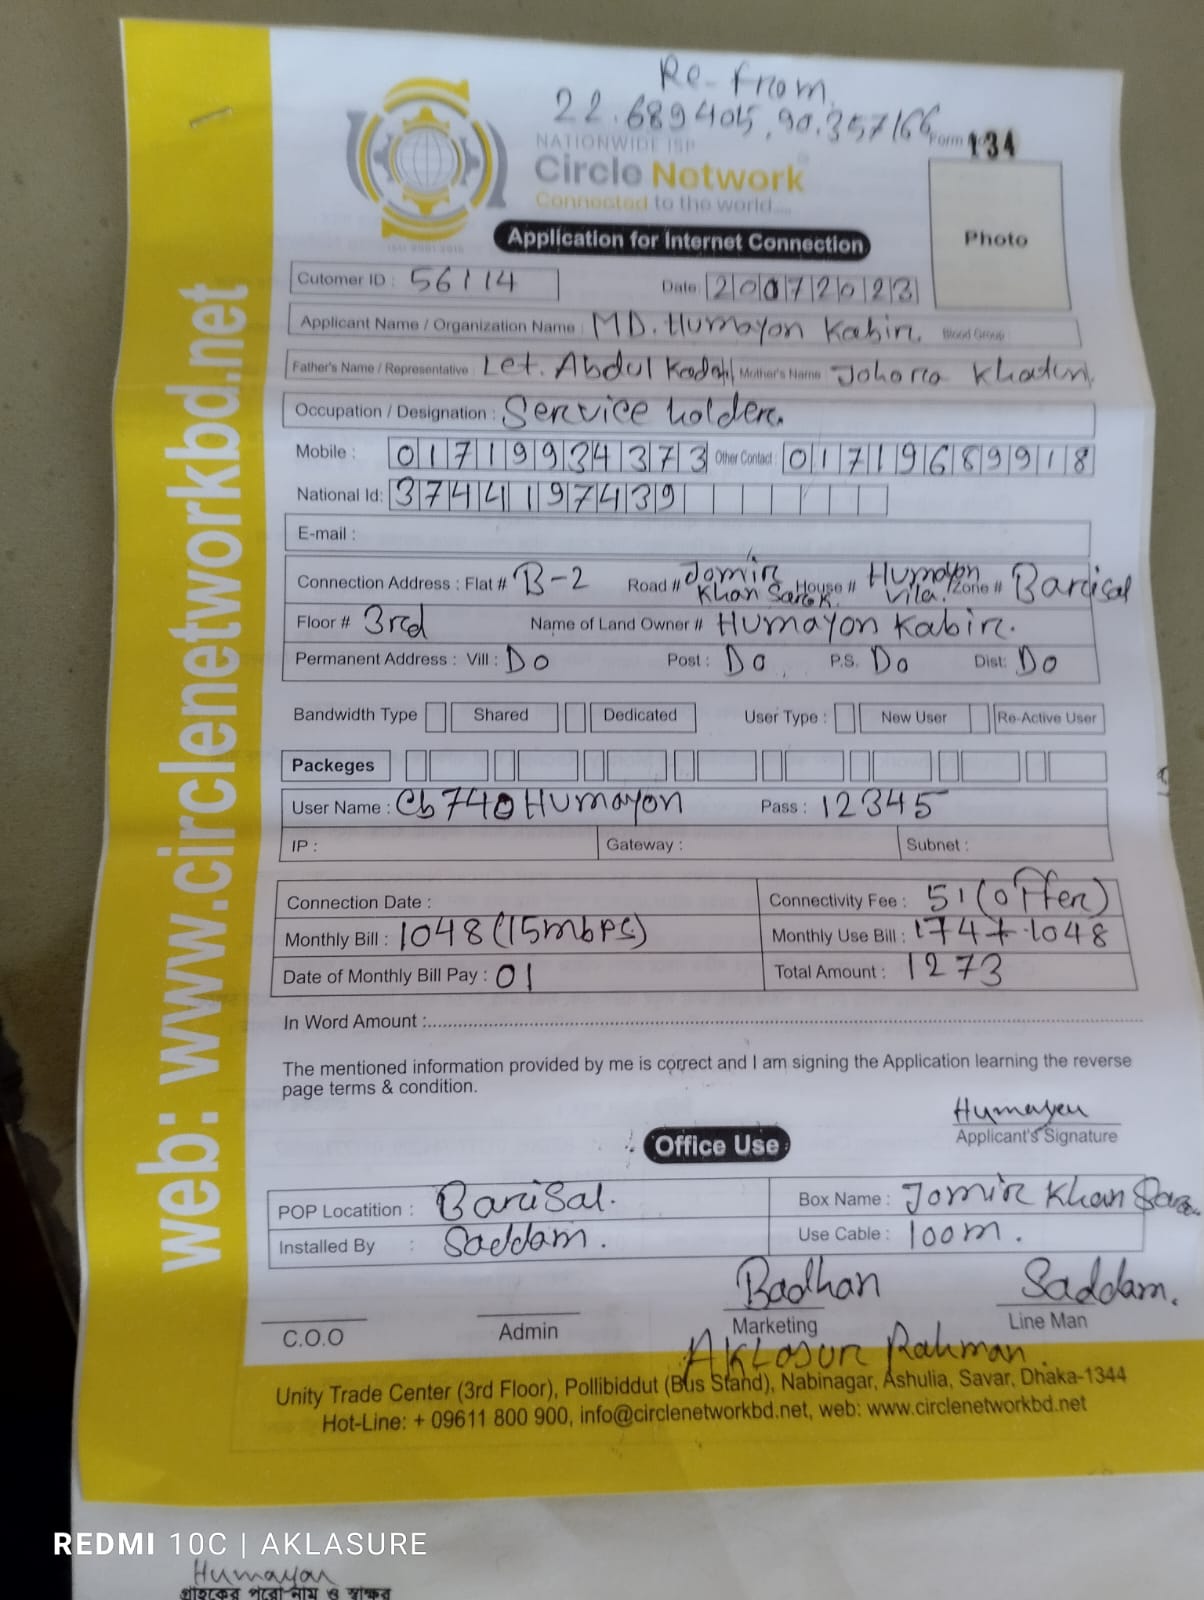 Re-From
22.689405,90.357166
Form 134
NATIONWIDE ISP
Circle Network
Connected to the world.....
Application for Internet Connection
Photo
Cutomer ID : 56114 Date: 20072023
Applicant Name / Organization Name : MD. Humayon Kabir. Blood Group
Father's Name / Representative : Let. Abdul Mother's Name Johora Khatun
Occupation / Designation : Service holder.
Mobile : 01719934373 Other Contact : 01719689918
National Id: 3744197439
E-mail :
Connection Address : Flat # B-2 Road # Jomir Khan Sarok. House # Humayon Vila. Zone # Barisal
Floor # 3rd Name of Land Owner # Humayon Kabir.
Permanent Address : Vill : Do Post : Do P.S. Do Dist: Do
Bandwidth Type Shared Dedicated User Type : New User Re-Active User
Packeges
User Name : Cb740Humayon Pass : 12345
IP : Gateway : Subnet :
Connection Date : Connectivity Fee : 51 (offer)
Monthly Bill : 1048 (15mbps) Monthly Use Bill : 174+1048
Date of Monthly Bill Pay : 01 Total Amount : 1273
In Word Amount :
The mentioned information provided by me is correct and I am signing the Application learning the reverse
page terms & condition.
Humayon
Applicant's Signature
Office Use
POP Locatition : Barisal. Box Name : Jomir Khan
Installed By : Saddam. Use Cable : 100m.
Badhan Saddam.
C.O.O Admin Marketing Line Man
Aklasur Rahman
Unity Trade Center (3rd Floor), Pollibiddut (Bus Stand), Nabinagar, Ashulia, Savar, Dhaka-1344
Hot-Line: + 09611 800 900, info@circlenetworkbd.net, web: www.circlenetworkbd.net
web: www.circlenetworkbd.net
REDMI 10C | AKLASURE
Humayon
গ্রাহকের পুরো নাম ও স্বাক্ষর